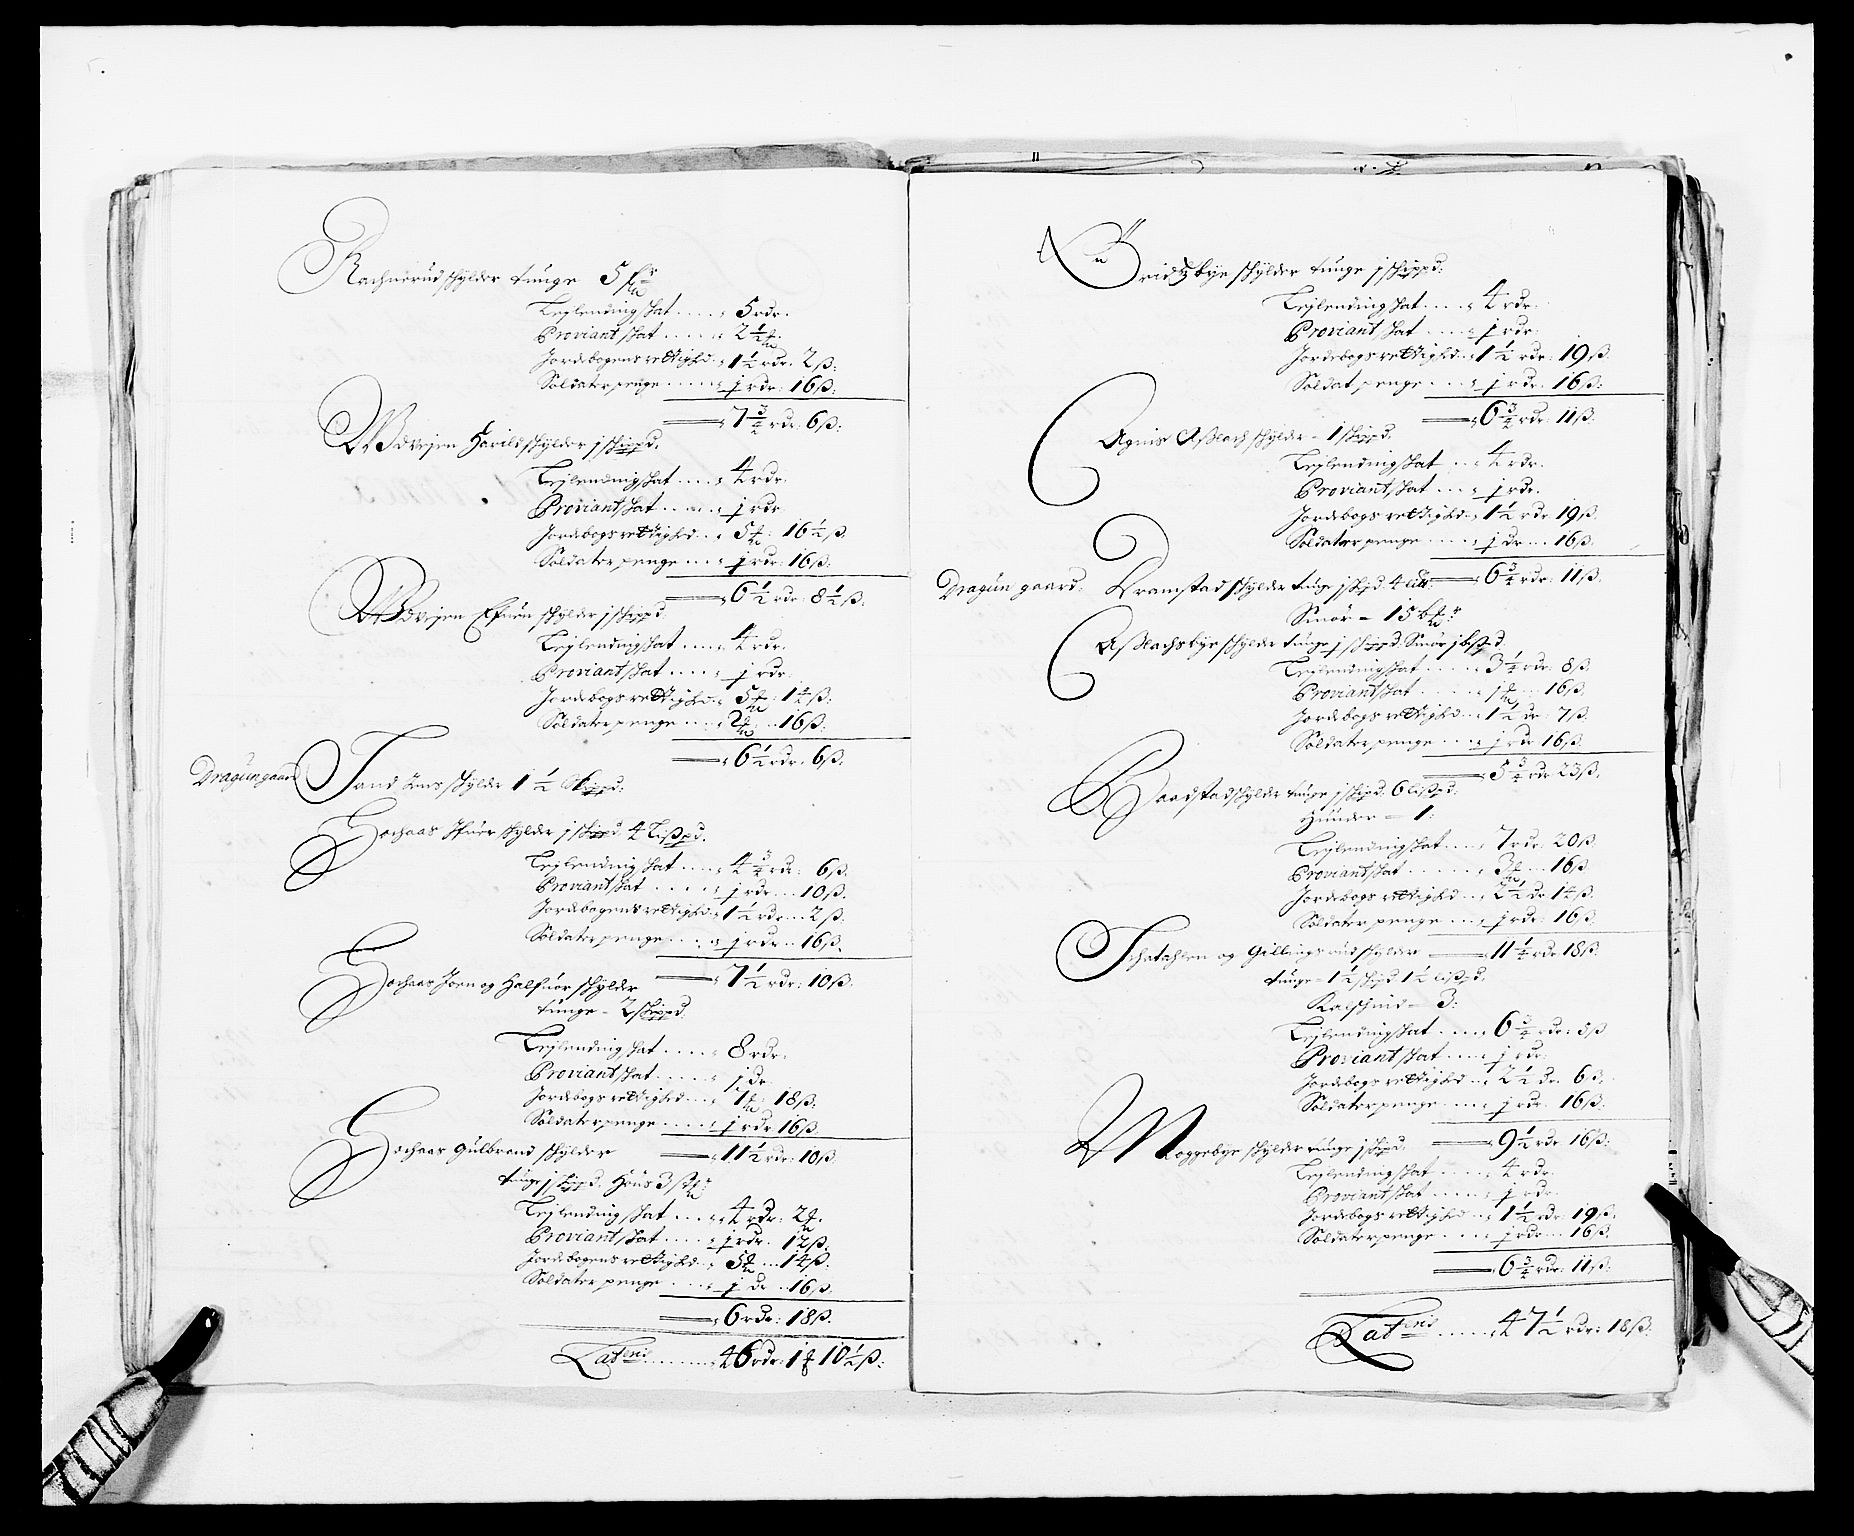 Rachnerud schylder tunge 5
Leylending schat ..... 5 rdr.
Proviant schat ..... 2 1/2
Jordebogens rettighd. 1 1/2 rdr. 2 ß.
Soldater penge ..... j rdr: 16 ß:
7 3/4 rdr: 6 ß:
Harild schylder j schippd.
Leylending schat .... 4 rdr.
Proviant schat .... j rdr
Jordebogs rettighd .. 5 : 16 1/2 ß.
Soldater penge .... j rdr: 16 ß.
6 1/2 rdr: 8 1/2 ß.
schylder j schippd.
Leylending schat .... 4 rdr.
Proviant schat ..... j rdr.
Jordebogs rettighd. 5 : 14 ß:
Soldater penge .... 2 .. 16 ß:
6 1/2 rdr. 6 ß:
Dragun gaard
Sand schylder 1 1/2 Schippd:
Sochaas schylder j schippd 4 Lißpd.
Leylending schat .... 4 3/4 rdr: 6 ß.
Proviant schat ..... j rdr .... 10 ß.
Jordebogens rettighd. 1 1/2 rdr ... 2 ß.
Soldater penge ... j rdr .. 16 ß.
7 1/2 rdr: 10 ß.
Sochaas Joen og Halfuor schylder
tunge - 2 schippd.
Leylending schat ..... 8 rdr.
Proviant schat ..... j dr.
Jordebogs rettighd ... 1 : 18 ß.
Soldater penge ..... j rdr 16 ß.
11 1/2 rdr: 10 ß.
Sochaas Gulbrand schylder
tunge j schippd. 3
Leylending schat ... 4 rdr: 2
Proviant schat ..... j rdr. 12 ß.
Jordebogens rettighd. 5 ... 14 ß.
Soldater penge .... j dr ... 16 ß.
6 rdr: 18 ß.
Latens ......... 46 rdr: 1 10 1/2 ß:
bye schylder tunge j schippd:
Leylending schat ..... 4 rdr.
Proviant schat .... j rdr:
Jordebogs rettighd. 1 1/2 rdr: 19 ß.
Soldat penge .... j rdr. 16 ß:
6 3/4 rdr: 11 ß:
Agnis Aßlach schylder - 1 schippd.
Leylending schat ... 4 rdr.
Proviant schat .... j rdr.
Jordebogs rettighd. 1 1/2 rdr 19 ß.
Soldater penge ..... j dr .... 16 ß.
6 3/4 rdr: 11 ß.
Dragun gaard.
Dramstad schylder tunge j schpd. 4
Smör - 15
Aßlachsbye schylder tunge j schippd. Smör j
Leylending schat ..... 3 1/4 rdr: 8 ß.
Proviant schat ...... 1 ... 16 ß.
Jordebogs rettighd .. 1 1/2 dr: 7 ß.
Soldater penge .... j rdr 16 ß.
5 3/4 rdr 23 ß.
Baadstad schylder tunge j schippd. 6 Lißpd:
Huuder - 1:
Leylending schat ..... 7 rdr: 20 ß.
Proviant schat ....... 3 ... 16 ß.
Jordebogs rettighd ... 2 1/2 dr: 14 ß.
Soldater penge .... j rdr: 16 ß.
11 1/4 rdr 18 ß.
og Gillingsrud schylder
tunge - 1 1/2 schippd 1 1/2 Lißpd.
Kalschind - 3:
Leylending schat ..... 6 3/4 rdr: 5 ß
Proviant schat ..... j rdr:
Jordebogs rettighd ... 2 1/2 dr. 6 ß.
Soldater penge ..... j rdr. 16 ß:
9 1/2 rdr 16 ß:
Moggebye schylder tunge j schippd.
Leylending schat ...... 4 rdr.
Proviant schat ...... j rdr.
Jordebogs rettighd .. 1 1/2 rdr: 19 ß.
Soldater penge ...... j rdr .... 16 ß.
6 3/4 rdr: 11 ß:
Latens ...... 47 1/2 rdr: 18 ß.